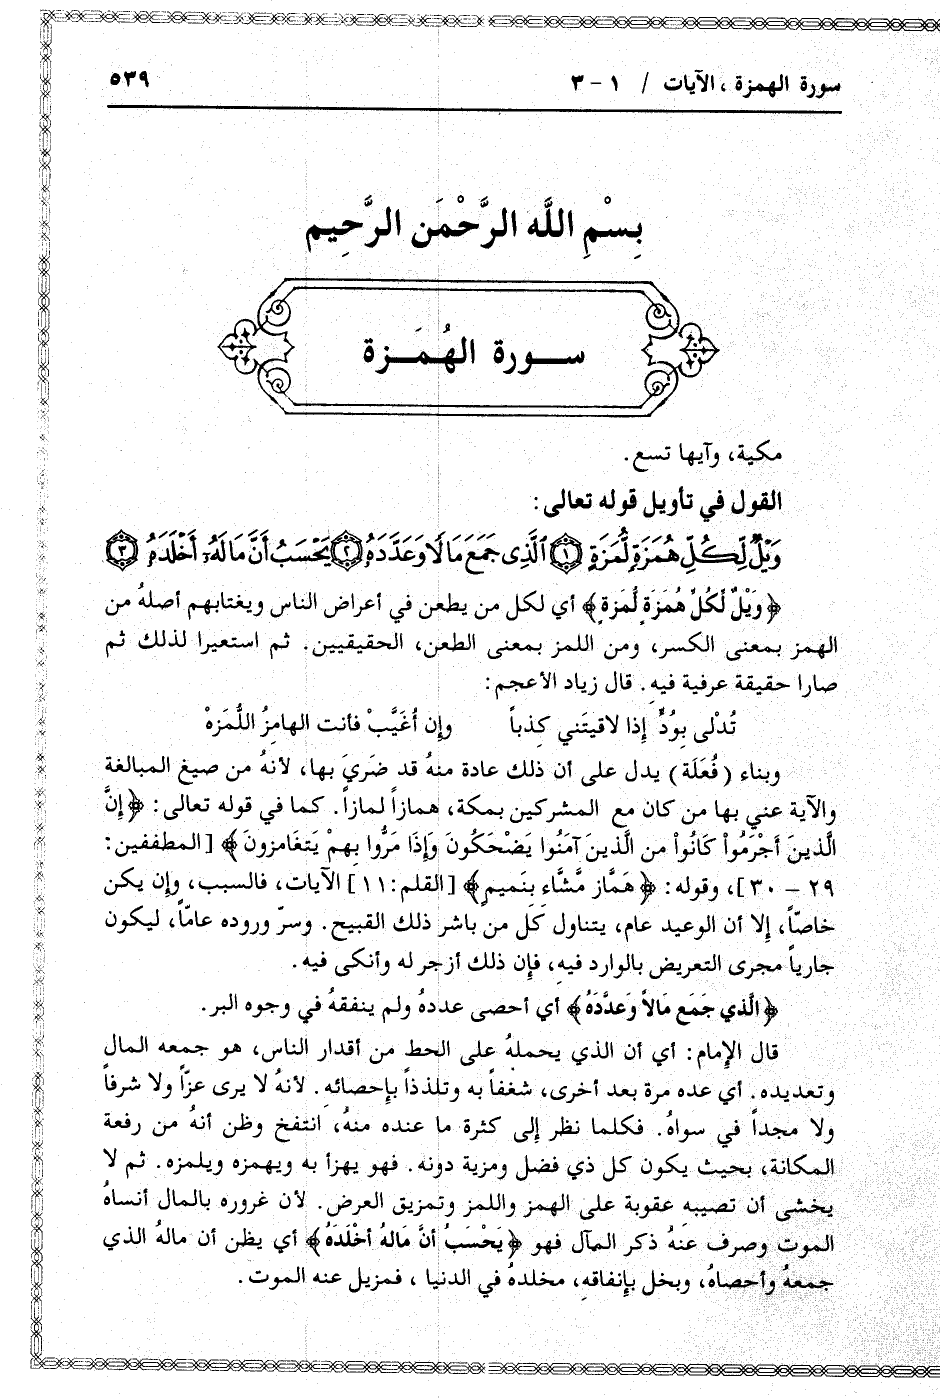 سورة الهمزة ، الآيات / ١ - ٣ ٥٣٩
بِسْمِ اللَّه الرَّحْمَن الرَّحِيم
سورة الهُمَزة
مكية، وآيها تسع.
القول في تأويل قوله تعالى:
وَيْلٌ لِّكُلِّ هُمَزَةٍ لُّمَزَةٍ ١ ٱلَّذِى جَمَعَ مَالًا وَعَدَّدَهُۥ ٢ يَحْسَبُ أَنَّ مَالَهُۥٓ أَخْلَدَهُۥ ٣
﴿وَيْلٌ لكُلِّ هُمَزَةٍ لُمَزةٍ﴾ أي لكل من يطعن في أعراض الناس ويغتابهم أصلهُ من
الهمز بمعنى الكسر، ومن اللمز بمعنى الطعن، الحقيقيين. ثم استعيرا لذلك ثم
صارا حقيقة عرفية فيهِ. قال زياد الأعجم:
تُدْلى بِوُدٍّ إِذا لاقيتَني كذباً وإن أُغَيَّبْ فأنت الهامزُ اللُّمَزهْ
وبناء (فُعَلَة) يدل على أن ذلك عادة منهُ قد ضَرِيَ بها، لأنهُ من صيغ المبالغة
والآية عني بها من كان مع المشركين بمكة، همازاً لمازاً. كما في قوله تعالى: ﴿إِنَّ
الَّذينَ أَجْرَمُواْ كَانُواْ من الَّذينَ آمَنُوا يَضْحَكُونَ وَإِذَا مَرُّوا بِهِمْ يَتغَامزونَ﴾ [المطففين:
٢٩ - ٣٠]، وقوله: ﴿هَمَّاز مَّشَّاءٍ بِنَميمٍ﴾ [القلم: ١١] الآيات، فالسبب، وإن يكن
خاصّاً، إلا أن الوعيد عام، يتناول كل من باشر ذلك القبيح. وسرّ وروده عامّاً، ليكون
جارياً مجرى التعريض بالوارد فيهِ، فإن ذلك أزجر له وأنكى فيه.
﴿الَّذي جَمَع مَالاً وَعَدَّدَهُ﴾ أي أحصى عددهُ ولم ينفقهُ في وجوه البر.
قال الإمام: أي أن الذي يحملهُ على الحط من أقدار الناس، هو جمعه المال
وتعديده. أي عده مرة بعد أخرى، شغفاً به وتلذذاً بإحصائهِ. لأنهُ لا يرى عزّاً ولا شرفاً
ولا مجداً في سواهُ. فكلما نظر إلى كثرة ما عنده منهُ، انتفخ وظن أنهُ من رفعة
المكانة، بحيث يكون كل ذي فضل ومزية دونه. فهو يهزأ به ويهمزه ويلمزه. ثم لا
يخشى أن تصيبه عقوبة على الهمز واللمز وتمزيق العرض. لأن غروره بالمال أنساهُ
الموت وصرف عنهُ ذكر المآل فهو ﴿يَحْسَبُ أنَّ مَالهُ أخْلَدَهُ﴾ أي يظن أن مالهُ الذي
جمعهُ وأحصاهُ، وبخل بإنفاقهِ، مخلدهُ في الدنيا ، فمزيل عنه الموت.